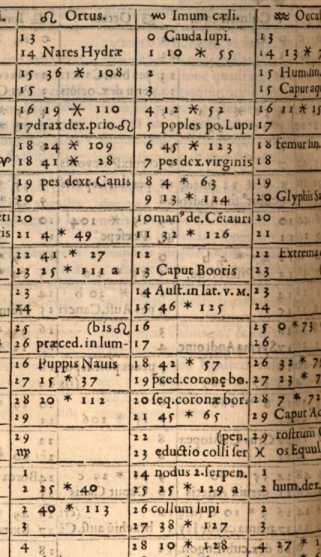 ♌ Ortus. ♏ Imum cæli. ♒ Occaſ
13 0 Cauda lupi. 13
14 Nares Hydræ 1 10 * 55 14 13 *
15 36 * 108 2 15 Hum.
15 3 15 Capur
16 19 * 110 4 12 * 52 16 11 * 15
17 drax dex. prio. ♌ 5 poples po. Lupi 17
18 24 * 109 6 45 * 123 18 femur ſin.
♈ 18 41 * 28 7 pes dex. virginis 18
19 pes dext. Canis 8 4 * 63 19
20 9 13 * 124 20 Glyphis
20 10 man9 de. Cētauri 20
is 21 4 * 49 11 32 * 126 21
22 41 * 27 12 22 Extrema
23 25 * 111 a 13 Caput Bootis 23
23 14 Auſt. in lat. v. M. 23
24 15 46 * 125 24
25 (bis ♌ 16 25 0 * 73
26 præced. in lum- 17 26
16 Puppis Nauis 18 42 * 57 26 32 *
17 15 * 37 19 p̄ced. coronę bo. 27 23 * 7
28 20 * 112 20 ſeq. coronæ bor. 28 7 * 72
29 21 45 * 65 29 Caput
29 22 (pen. 29 roſtrum
♍ 23 eductio colli ſer ♓ os Equul
1 24 nodus 2. ſerpen. 1
2 25 * 40 25 25 * 129 a 2 hum. dex.
2 40 * 113 26 collum lupi 2
3 27 38 * 127 3
4 28 10 * 128 4 27 * 1